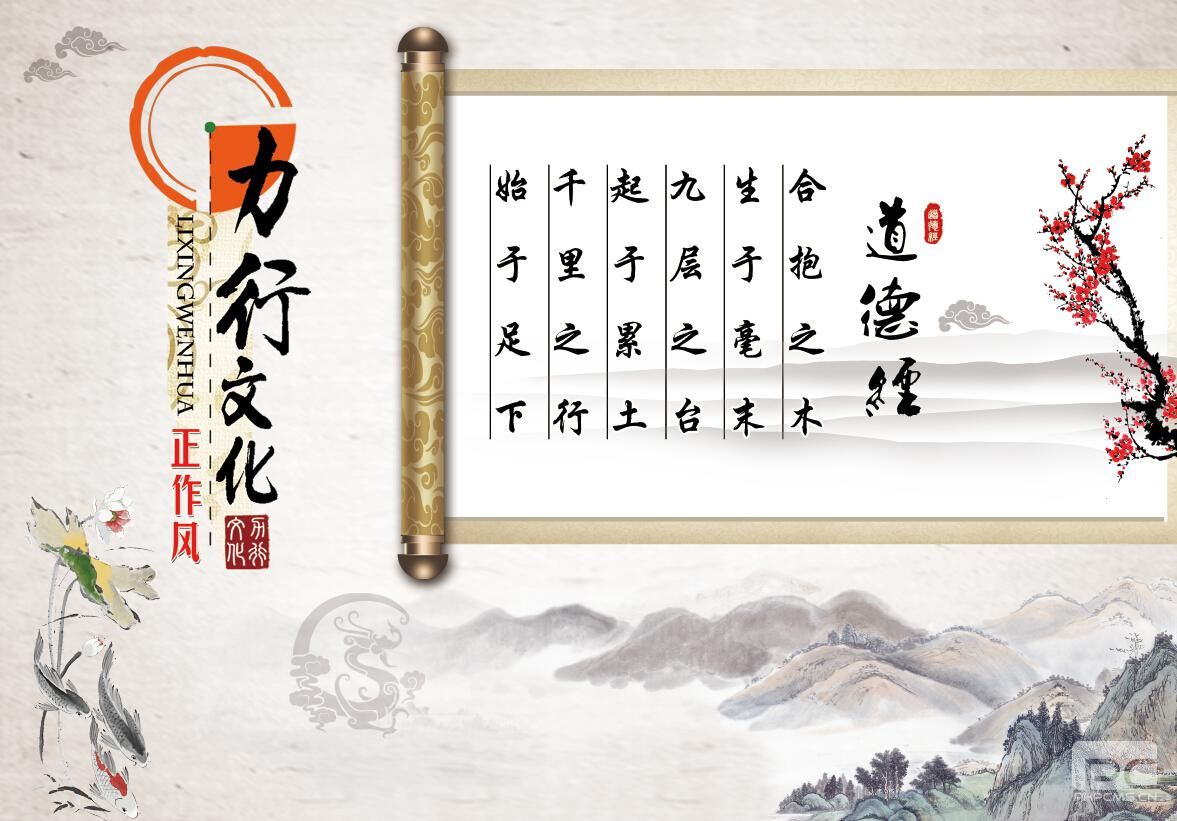 力行文化
LIXINGWENHUA
正作风
力行
文化
道德經
道德經
合抱之木
生于毫末
九层之台
起于累土
千里之行
始于足下
PHPCMS.CN